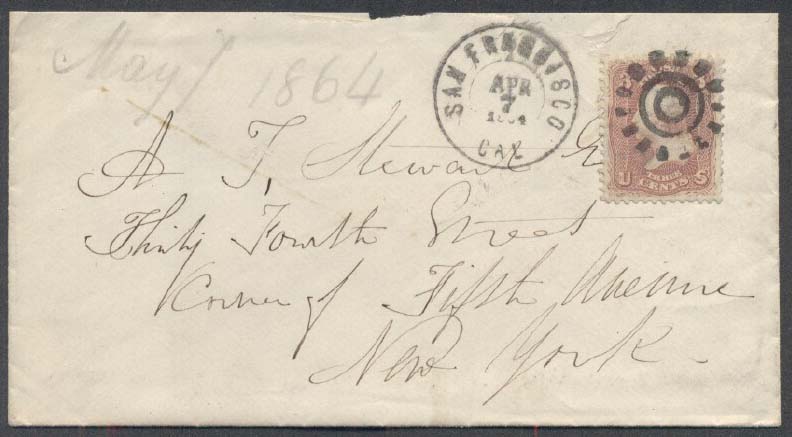 May 7 1864
SAN FRANCISCO
APR
7
1864
CAL
U THREE CENTS S
A T, Stewart E
Thirty Fourth Street
Corner of Fifth Avenue
New York